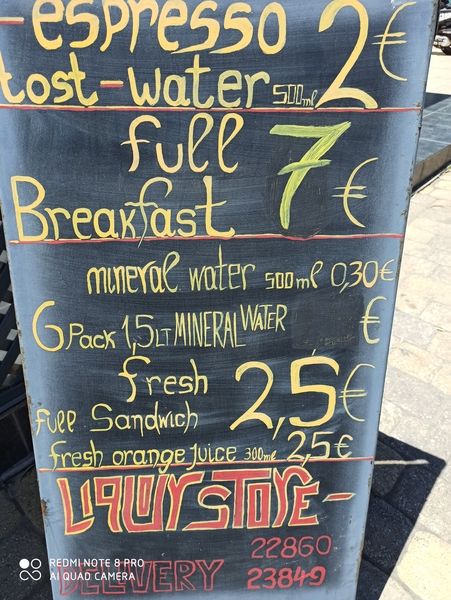 -espresso
tost-water 500ml 2€
full
Breakfast 7€
mineral water 500ml 0,30€
6 Pack 1,5LT MINERAL WATER €
fresh
full Sandwich 2,5€
fresh orange juice 300ml 2,5€
LIQUOR STORE-
22860
DELIVERY 23849
REDMI NOTE 8 PRO
AI QUAD CAMERA